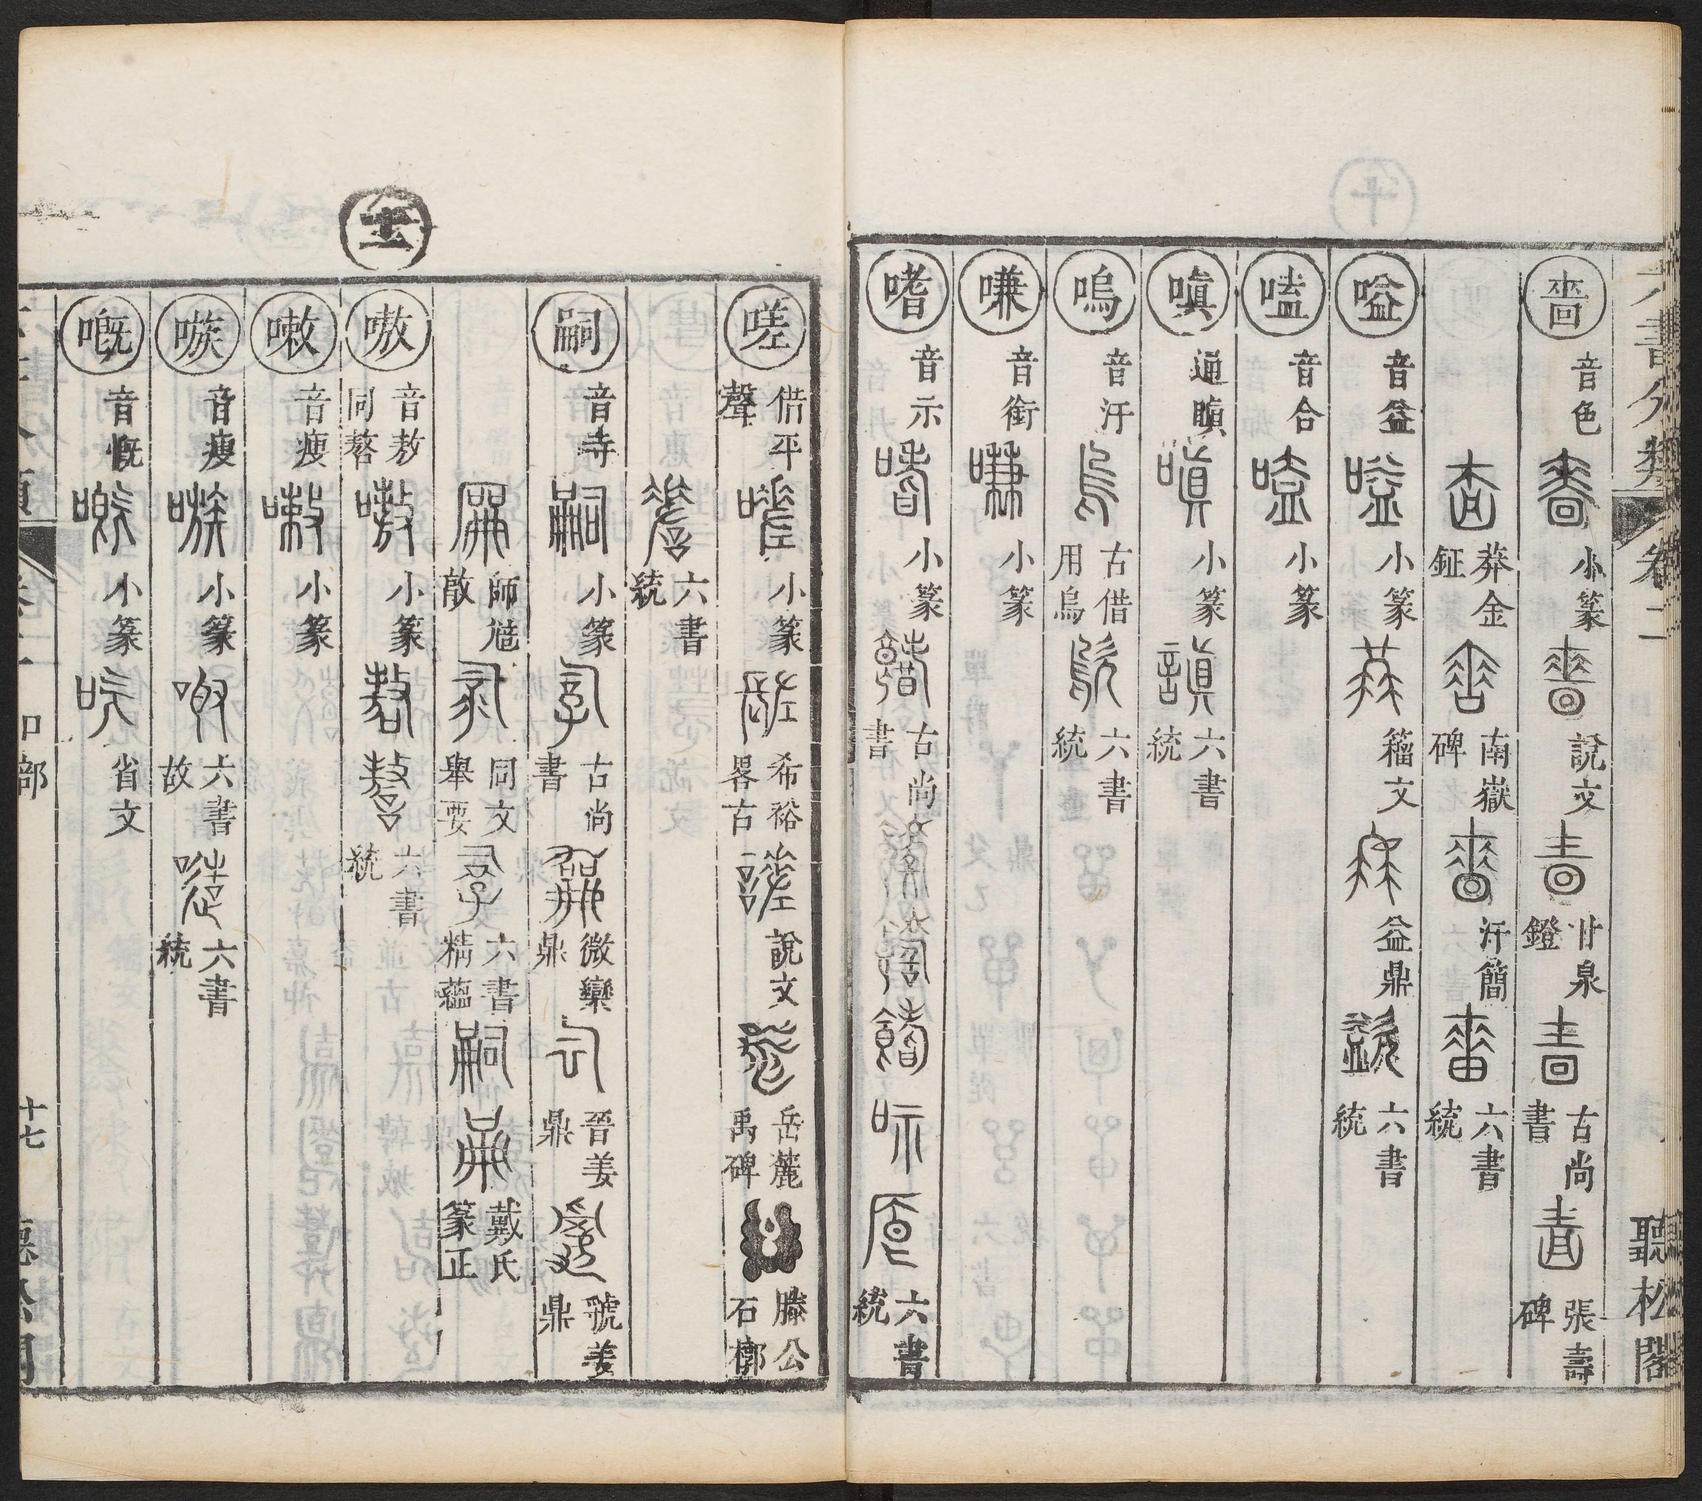 六書分類 卷二 聽松閣
嗇 音色 小篆 說文 甘泉鐙 古尚書 張壽碑
莽金鉦 南嶽碑 汗簡 六書統
嗌 音益 小篆 籀文 益鼎 六書統
嗑 音合 小篆
嗔 通瞋 小篆 六書統
嗚 音汙 古借用烏 六書統
嗛 音銜 小篆
嗜 音示 小篆 古尚書 六書統
十一
嗟 借平聲 小篆 希裕畧古 說文 岳麓禹碑 滕公石槨
六書統
嗣 音寺 小篆 古尚書 微欒鼎 晉姜鼎 虢姜鼎
師𮥼敵 同文舉要 六書精蘊 戴氏篆正
嗷 音敖 同嗸 小篆 六書統
嗽 音瘦 小篆
嗾 音瘦 小篆 六書故 六書統
嘅 音慨 小篆 省文
卷二 口部 十七